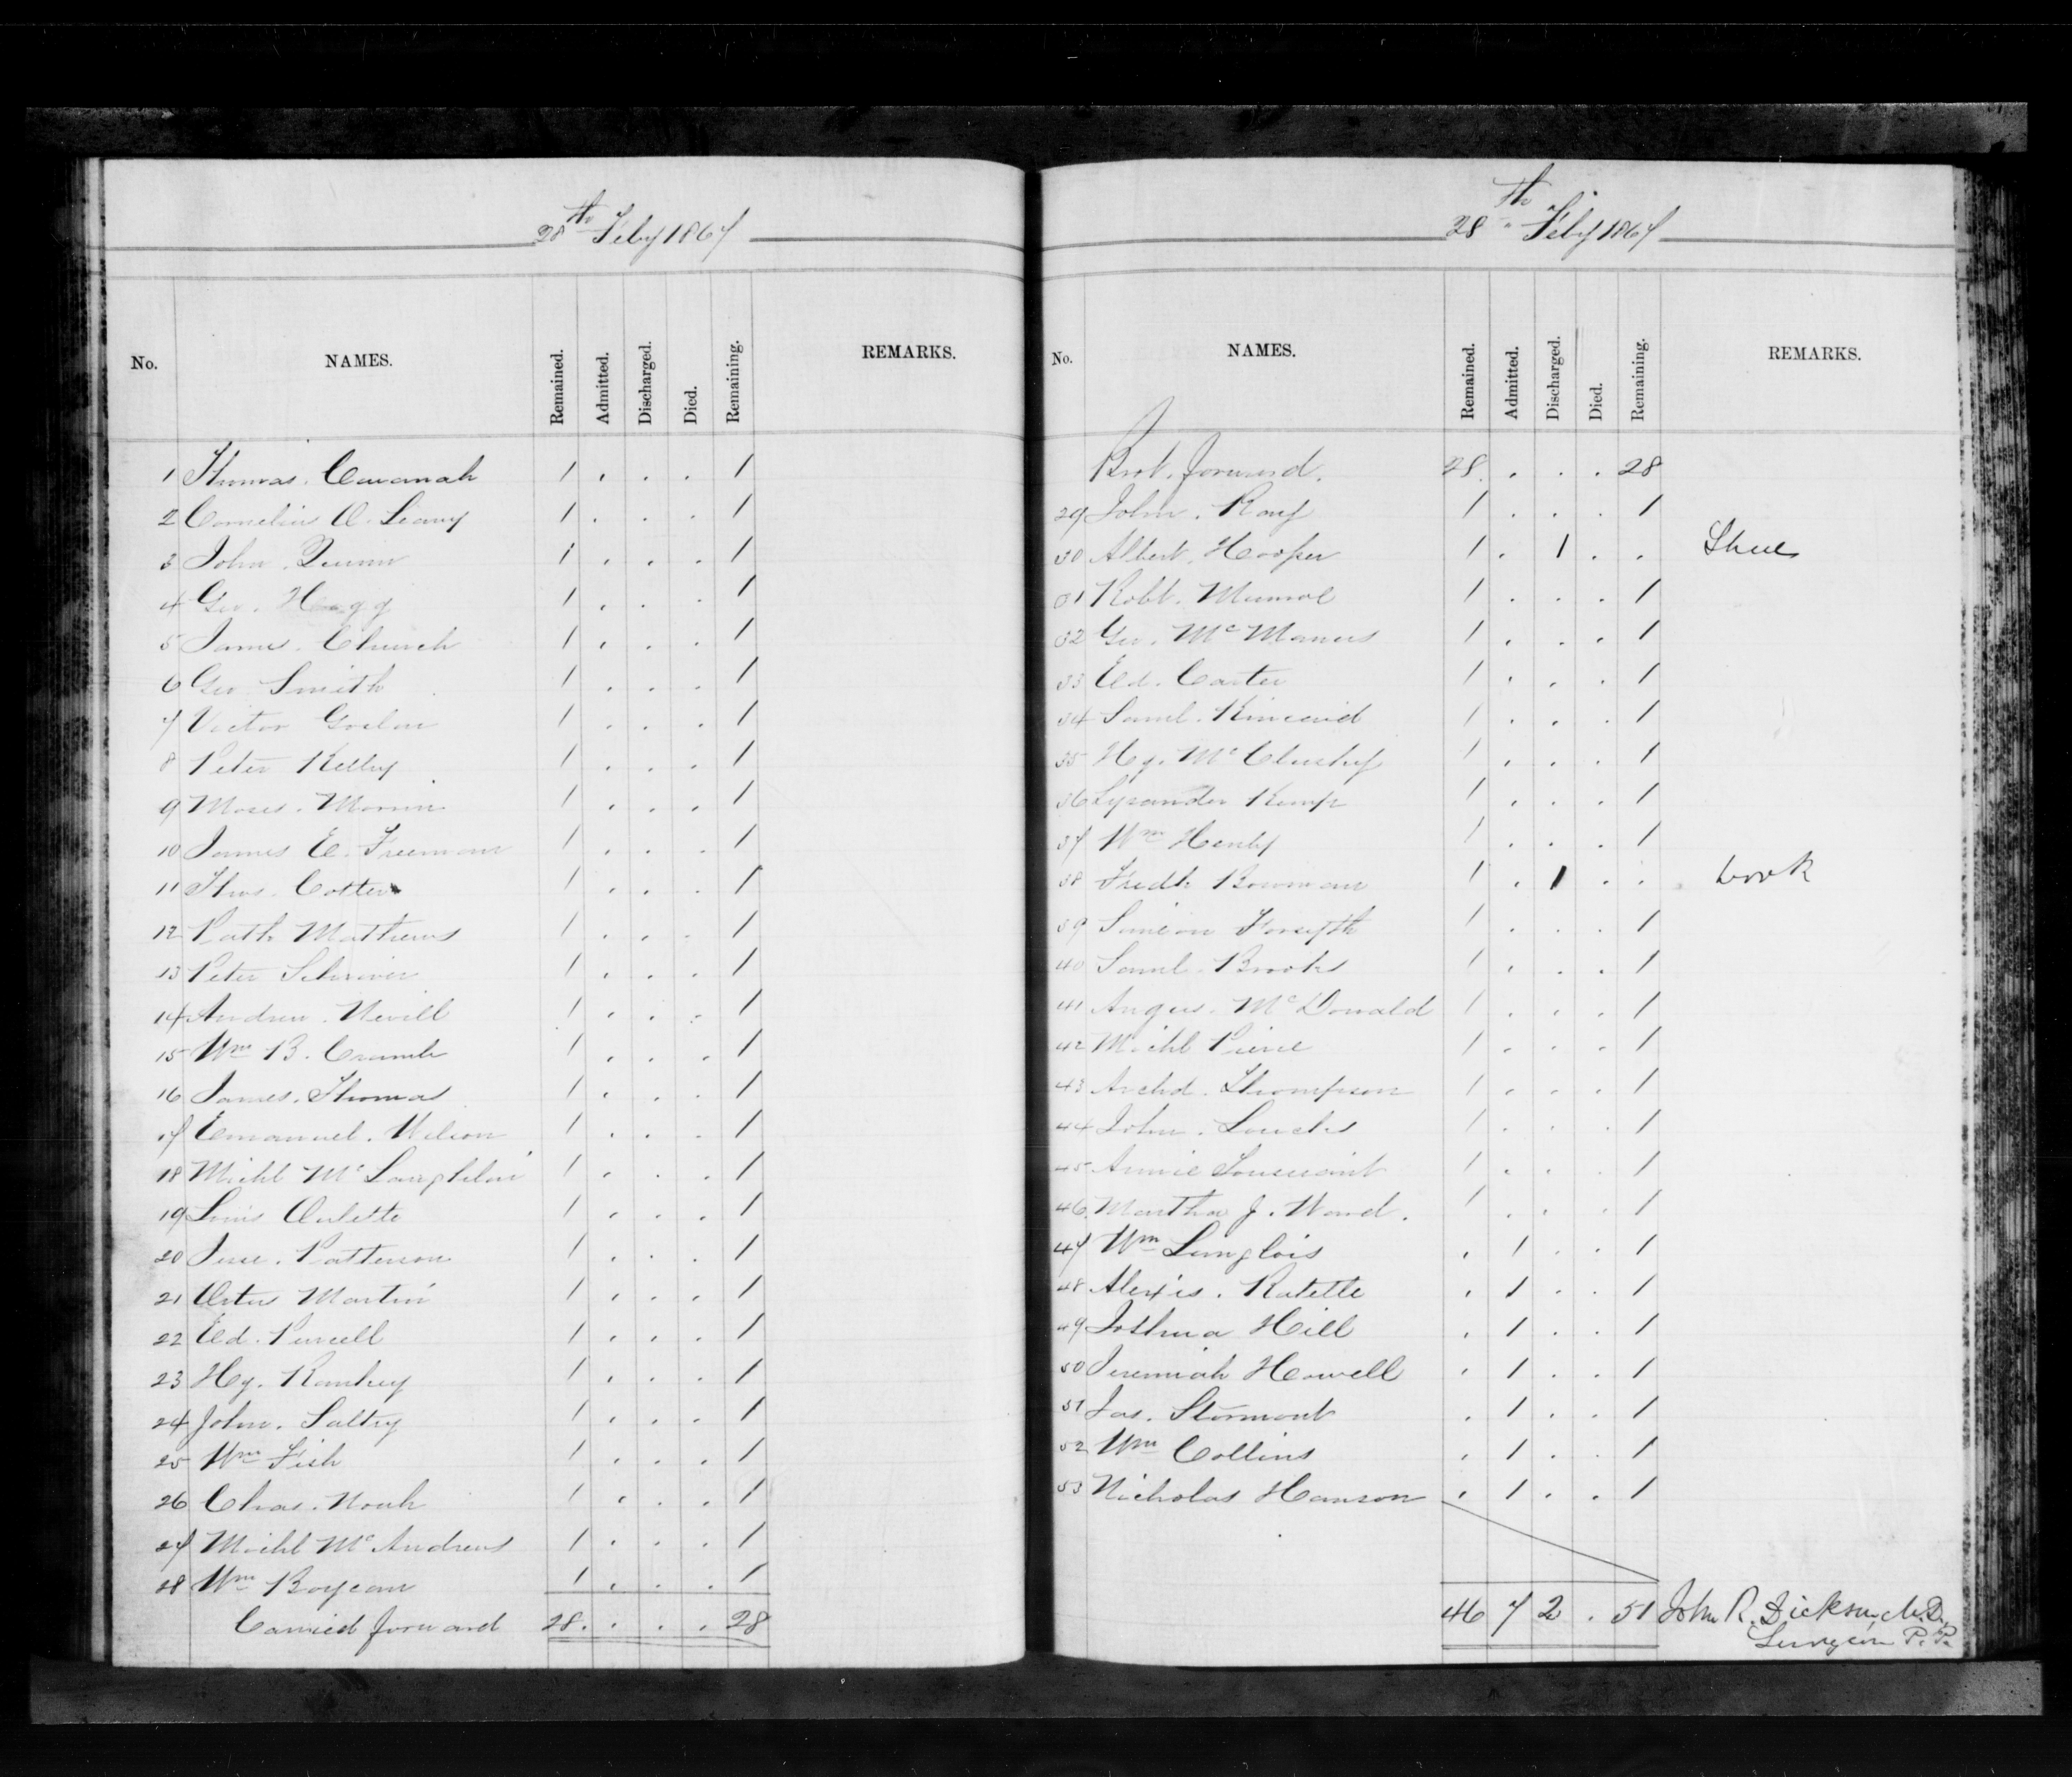 28th Feby 1867
No. NAMES. Remained. Admitted. Discharged. Died. Remaining. REMARKS.
1 Thomas. Cavanah 1 . . . 1
2 Cornelius O. Leary 1 . . . 1
3 John. Quinn 1 . . . 1
4 Geo. Hogg 1 . . . 1
5 James. Church 1 . . . 1
6 Geo Smith 1 . . . 1
7 Victor 1 . . . 1
8 Peter Kelly 1 . . . 1
9 Moses. Morrin 1 . . . 1
10 James E. Freeman 1 . . . 1
11 Thos. Cotter 1 . . . 1
12 Patk Mathews 1 . . . 1
13 Peter Schriver 1 . . . 1
14 Andrew. Nevill 1 . . . 1
15 Wm B. Crumb 1 . . . 1
16 James. Thomas 1 . . . 1
17 Emanuel. Wilson 1 . . . 1
18 Michl McLaughlin 1 . . . 1
19 Louis Oulette 1 . . . 1
20 Jesse. Patterson 1 . . . 1
21 Martin 1 . . . 1
22 Ed. Purcell 1 . . . 1
23 Hy. 1 . . . 1
24 John. Saltry 1 . . . 1
25 Wm Fish 1 . . . 1
26 Chas. Noah 1 . . . 1
27 Michl McAndrews 1 . . . 1
28 Wm 1 . . . 1
Carried forward 28. . . . 28
28th Feby 1867
No. NAMES. Remained. Admitted. Discharged. Died. Remaining. REMARKS.
Brot. forward. 28. . . . 28
29 John. Roay 1 . . . 1
30 Albert. Hooper 1 . 1 . . Shue
31 Robt. Munroe 1 . . . 1
32 Geo. McManus 1 . . . 1
33 Ed. Carter 1 . . . 1
34 Saml. Kincaid 1 . . . 1
35 Hy. McCluskey 1 . . . 1
36 Lysander Kemp 1 . . . 1
37 Wm Henly 1 . . . 1
38 Fredk Bowman 1 . 1 . . Cook
39 Simeon Forsyth 1 . . . 1
40 Saml. Brooks 1 . . . 1
41 Angus. McDonald 1 . . . 1
42 Michl Pierce 1 . . . 1
43 Archd. Thompson 1 . . . 1
44 John. Loucks 1 . . . 1
45 Annie Toussaint 1 . . . 1
46. Martha J. Ward. 1 . . . 1
47 Wm Langlois . 1 . . 1
48 Alexis. Ratelle . 1 . . 1
49 Joshua Hill . 1 . . 1
50 Jeremiah Howell . 1 . . 1
51 Jas. Stormont . 1 . . 1
52 Wm Collins . 1 . . 1
53 Nicholas Hanson . 1 . . 1
46 7 2 . 51 John R. Dickson M.D.
Surgeon P.P.